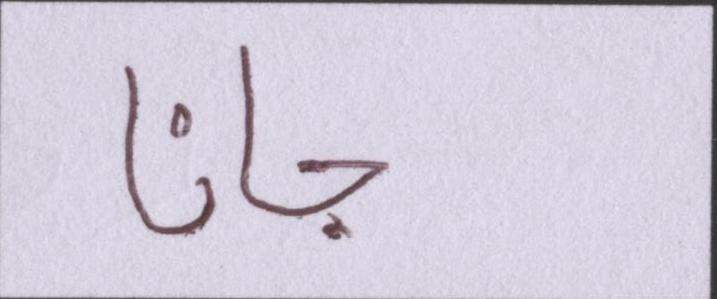 جانا